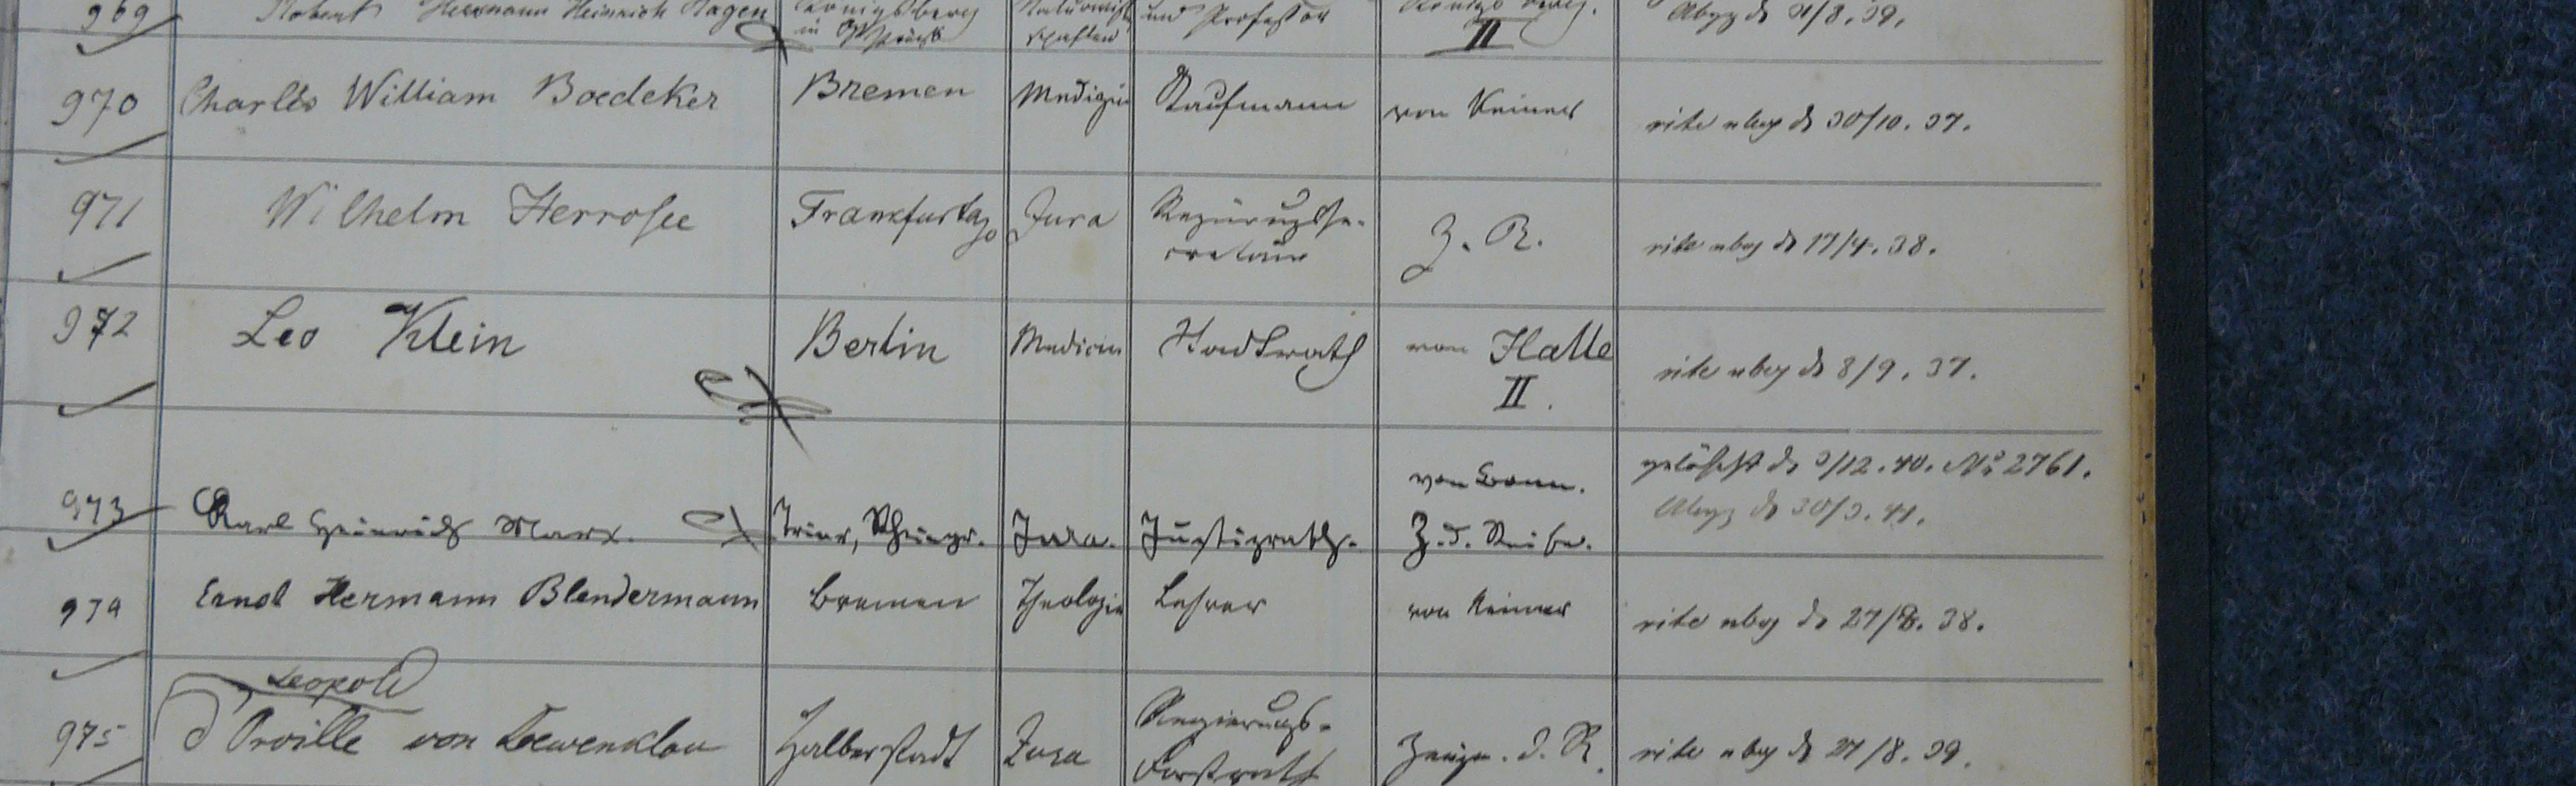 969 Robert Hermann Heinrich Hagen Königsberg in Naturwissenschaften und Professor Königsberg. II Abgz d 4/8. 39.
970 Charles William Boedeker Bremen Medizin Kaufmann von keiner rite abg d 30/10. 37.
971 Wilhelm Herrosee Frankfurt a/o Jura Regierungsse-
cretair Z. R. rite abg d 17/4. 38.
972 Leo Klein Berlin Medicin Stadtrath von Halle II. rite abg d 8/9. 37.
von Bonn. gelöscht d 3/12. 40. No 2761.
Abgz d 30/3. 41.
973 Karl Heinrich Marx. Trier, Jura. Justizrath. Z. d. Reife.
974 Ernst Hermann Blendermann Bremen Theologie Lehrer von keiner rite abg d 27/8. 38.
Leopold
975 d'Orville von Loewenklau Halberstadt Jura Regierungs-
Forstrath Zeugn. d. R. rite abg d 27/8. 39.